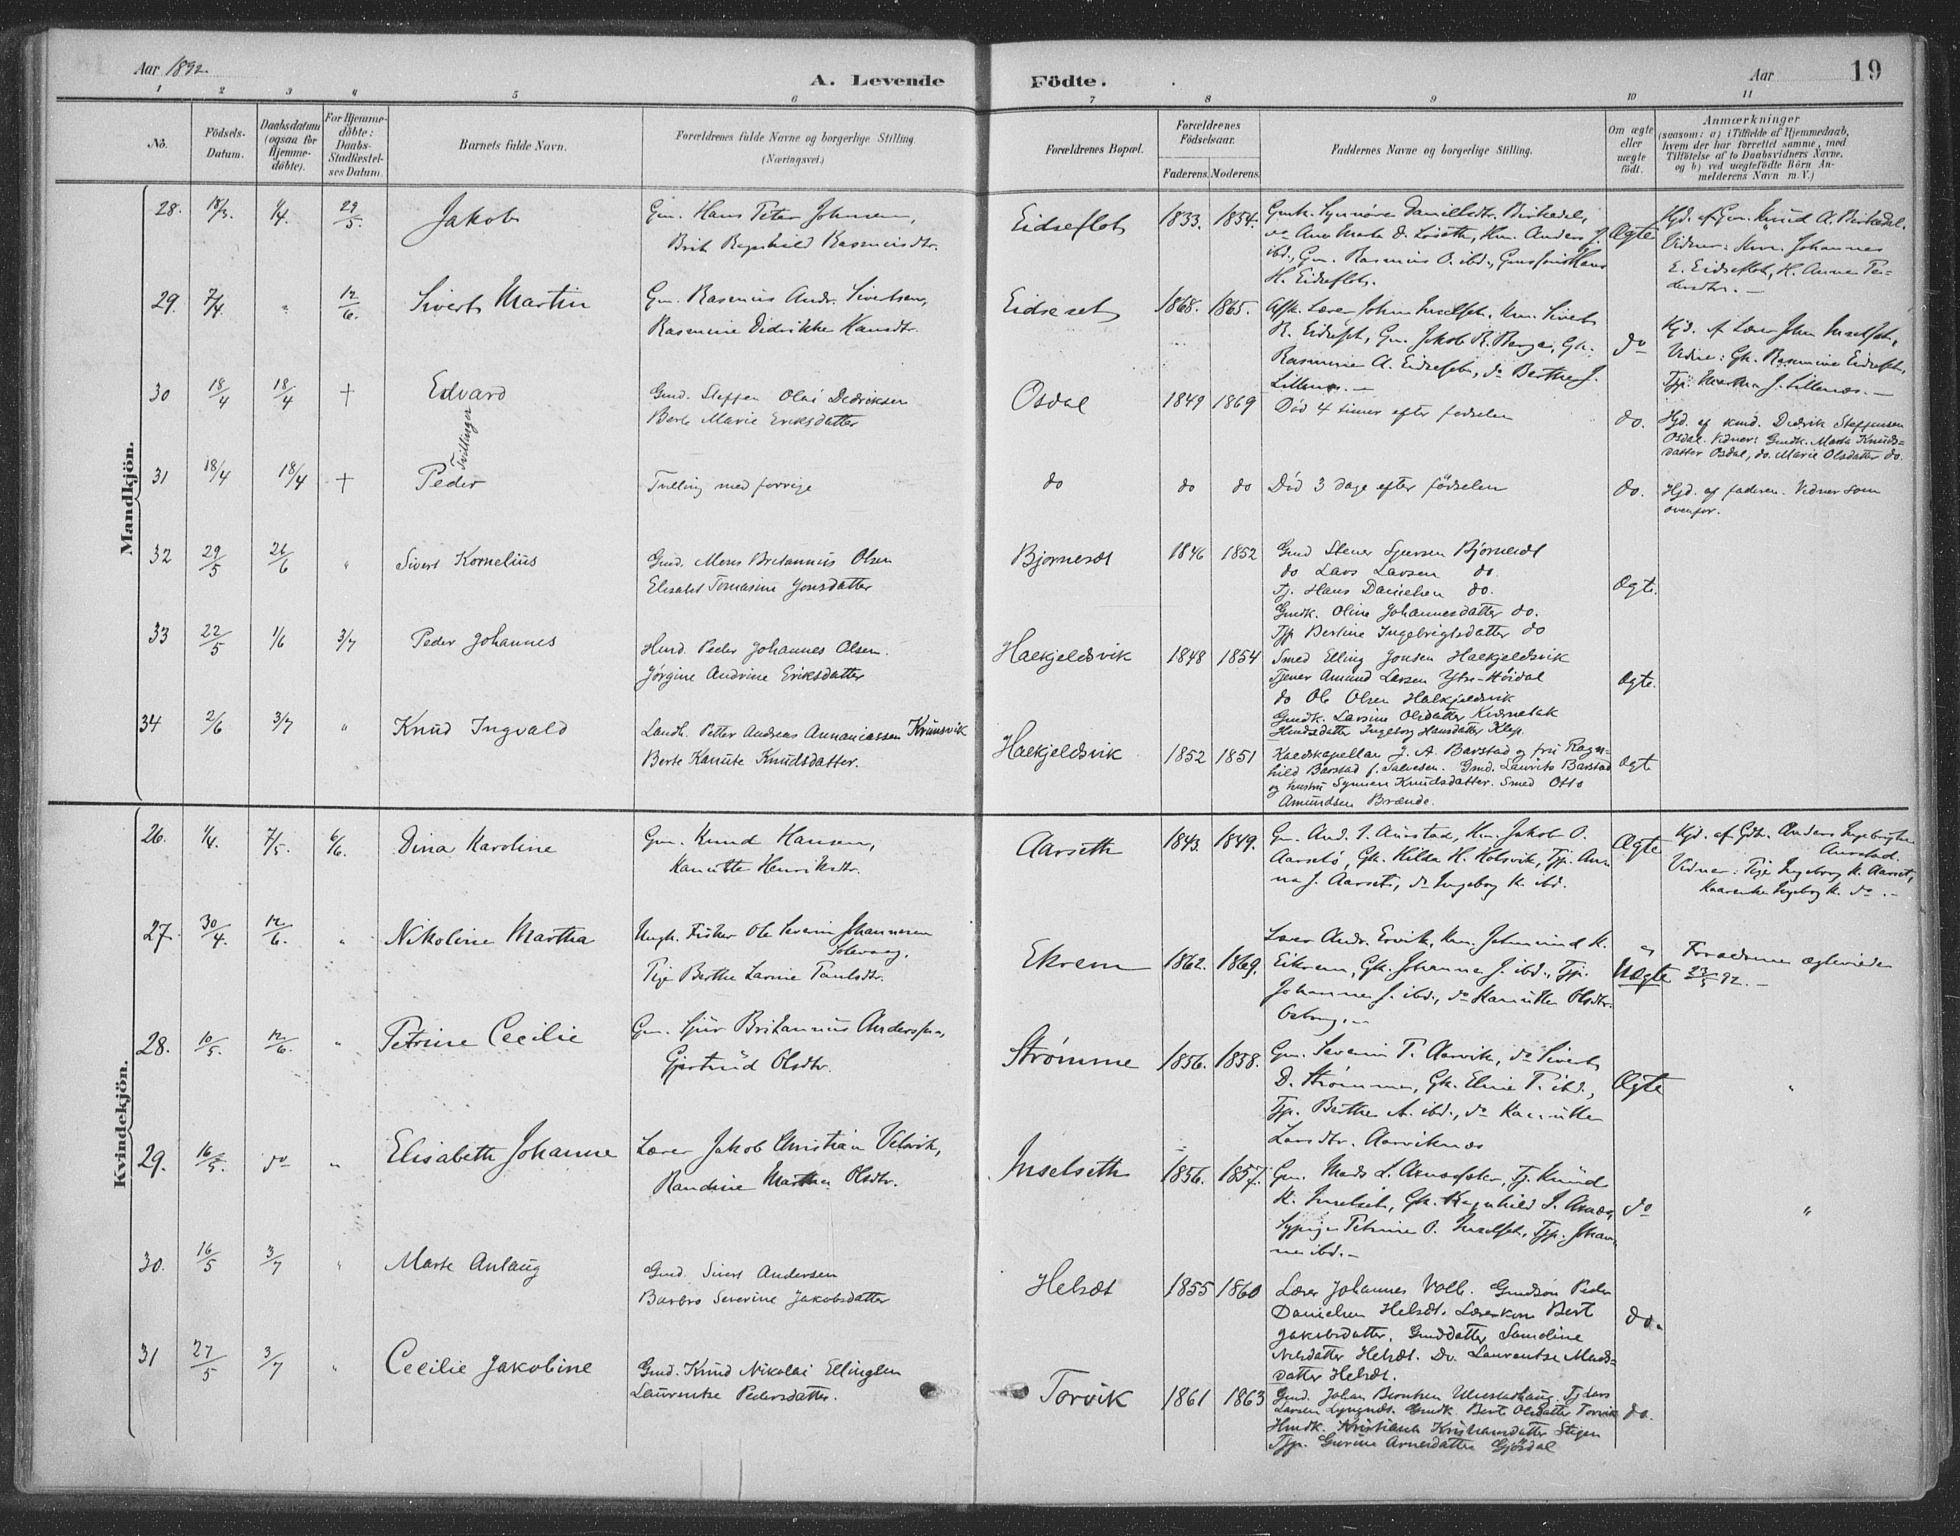 Aar 1892.
A. Levende
Födte.
Aar
19
1 2 3 4 5 6 7 8 9 10 11
No.
Födsels-
Datum.
Daabsdatum
(ogsaa for
Hjemme-
döbte).
For Hjemme-
döbte:
Daabs-
Stadfæstel-
ses Datum.
Barnets fulde Navn.
Forældrenes fulde Navne og borgerlige Stilling
(Næringsvei.)
Forældrenes Bopæl.
Forældrenes
Födselsaar.
Faderens. Moderens.
Faddernes Navne og borgerlige Stilling.
Om ægte
eller
uægte
født.
Anmærkninger
(saasom: a) i Tilfælde af Hjemmedaab,
hvem der har forrettet samme, med
Tilföielse af to Daabsvidners Navne,
og b) ved uægtefödte Börn An-
melderens Navn m. V.)
Mandkjön.
28. 18/3. 1/4. 29/5. Jakob
Gm. Hans Peter Johnsen,
Brit Ragnhild Rasmusdtr.
Eidseflot 1833. 1854.
Gmk. Synnöve Danielsdtr. Birkedal,
Anders J.
ibd., Gm. Rasmus O. ibd., Hans
H. Eidseflot.
Ægte
Hjd. af Gm. Knud A. Birkedal.
Vidner: Johannes
E. Eidseflot, H. Anne Pe-
dersdtr. —
29. 7/4. " 12/6. Sivert Martin
Gm. Rasmus Andr. Sivertsen,
Rasmine Didrikke Hansdtr.
Eidseset 1868. 1865.
Lærer John Inselset, Sivert
R. Eidseset, Gm. Jakob R. Berge, Gk.
Rasmine A. Eidseset, do Berthe J.
Lillenes. —
do
Hjd. af Lærer John Inselset,
Vidne: Gk. Rasmine Eidseset,
Tjp. J. Lillenes. —
30 18/4 18/4 + Edvard
Tvillinger
Gmd. Steffen Olai Dedriksen
Berte Marie Eriksdatter
Osdal 1849 1869
Död 4 timer efter fødselen
do.
Hjd. af kmd. Dedrik Steffensen
Osdal. Vidner: Gmdk. Marta Knuds-
datter Osdal, do. Marie Olsdatter do.
31 18/4 18/4 + Peder
Tvilling med forrige
do do do Död 3 dage efter födselen
do. Hjd. af faderen. Vidner som
ovenfor.
32 29/5 26/6 " Sivert Kornelius
Gmd. Mons Britannus Olsen
Elisabet Tomasine Jonsdatter
Bjørnesæt 1846 1852
Gmd Stener Sjursen Bjørnesæt
do Lars Larsen do.
Tj. Hans Danielsen do.
Gmdk. Oline Johannesdatter do.
Tjp Bertine Ingebrigtsdatter do
Ægte.
33 22/5 1/6 3/7 Peder Johannes
Hmd. Peder Johannes Olsen.
Jørgine Andrine Eriksdatter
Halkjeldsvik 1848 1854
Smed Elling Jonsen Halkjeldsvik
Tjener Amund Larsen Ytre-Høidal
do Ole Olsen Halkjeldsvik
Gmdk. Larsine Olsdatter
Ingeborg Hansdatter Klep.
Ægte.
34 2/6 3/7 " Knud Ingvald
Landh. Petter Andreas Annaniassen Krumsvik
Berte Kanute Knudsdatter.
Halkjeldsvik 1852 1851
Kaldskapellan J. A. Barstad og fru Ragn-
hild Barstad f. Salvesen. Gmd. Laurits Barstad
og hustru Synnen Knudsdatter. Smed Otto
Amundsen Brænde.
Ægte
Kvindekjön.
26. 1/4. 7/5. 6/6. Dina Karoline
Gm. Knud Hansen,
Kanutte Henriksdtr.
Aarseth 1843. 1849.
Gm. And. I. Aurstad, Jakob O.
Aarseth, Gk. Hilda H. Kolsvik, Tjp. An-
na J. Aarset, do Ingeborg K. ibd.
Ægte
Hjd. af Anders Ingebrigtsen
Aurstad.
Vidner: Pige Ingeborg K. Aarset,
Ingeborg K. do. —
27. 30/4. 12/6. " Nikoline Martha
Ungk. Fisker Ole Severin Johannesen
Pige Berthe Larine Paulsdtr.
Ekrem 1862. 1869.
Lærer Andr. Ervik, Johs.
Eikrem, Gk. Johanna J. ibd., Tjp.
Johanna J. ibd., do Kanutte Olsdtr.
"
Uægte
Forældrene ægteviede
23/5 92. —
28. 10/5. 12/6. " Petrine Cecilie
Gm. Sjur Britannus Anderssen,
Gjertrud Olsdtr.
Strømme 1856. 1858.
Gm. Severin T. Aarvik, do Sivert
D. Strømme, Gk. Eline T. ibd.,
Tjp. Berthe A. ibd., do Kanutte
Larsdtr. Aarviknes
Ægte "
29. 16/5. do " Elisabeth Johanne
Lærer Jakob Christian Velsvik,
Randine Marthea Olsdtr.
Inselseth 1856. 1857.
Gm. Mads L. Tj. Knud
K. Inselset, Gk. Ragnhild J.
Petrine O. Inselset, Tjp. Johan-
ne ibd. —
do "
30. 16/5 3/7 " Marte Anlaug
Gmd. Sivert Andersen
Barbro Severine Jakobsdatter
Helsæt 1855 1860
Lærer Johannes Voll. Gmdsøn Peder
Danielsen Helsæt. Lærerkone Bert
Jakobsdatter. Gmddatter Samoline
Nilsdatter Helsæt. Do. Laurentse Mads-
datter Helsæt.
do.
31 27/5 3/7 " Cecilie Jakobine
Gmd. Knud Nikolai Ellingsen
Laurentse Pedersdatter.
Torvik 1861 1863
Gmd. Johan Berntsen Ulvestadhaug. Tj Lars
Larsen Lyngnes. Gmdk. Berte Olsdatter Torvik
Hmdk. Kristianse Kristiansdatter Stigen
Tjp. Gurine Arnesdatter Gjøsdal
do.